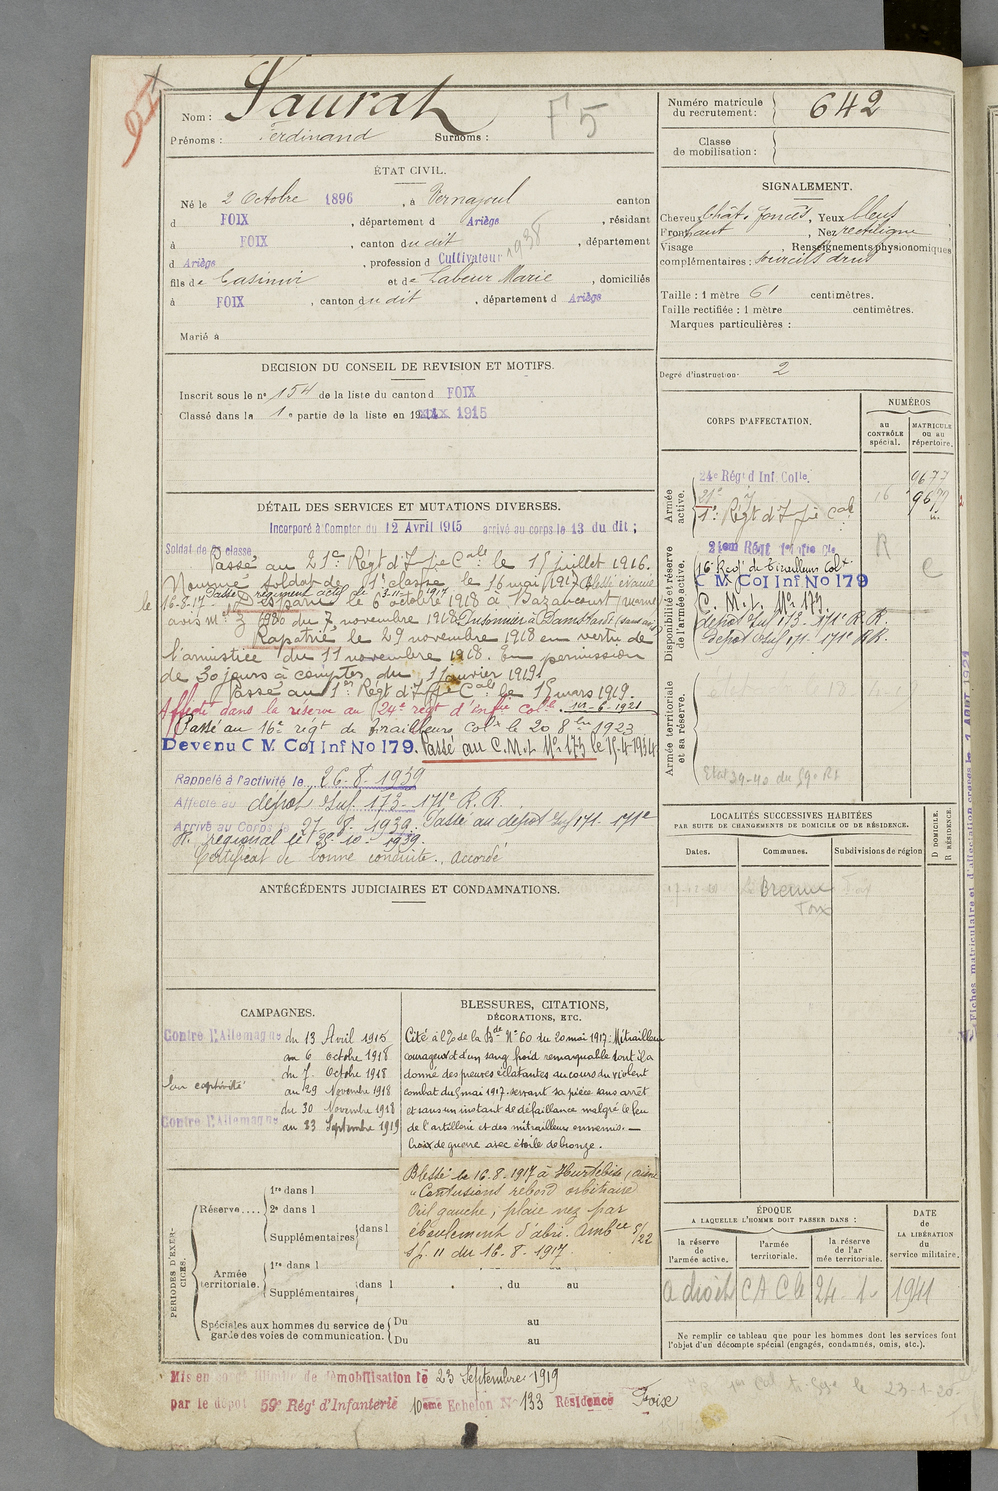 95
Nom : Saurat
F5
Prénoms : Ferdinand Surnoms :
Numéro matricule du recrutement : 642
Classe de mobilisation :
ÉTAT CIVIL.
Né le 2 Octobre 1896, à Vernajoul canton
d FOIX, département d Ariège, résidant
à FOIX, canton du dit, département
d Ariège, profession d Cultivateur 1938
fils de Casimir et de Labeur Marie, domiciliés
à FOIX, canton du dit, département d Ariège
Marié à
SIGNALEMENT.
Cheveux Chât. foncés, Yeux bleus
Front haut, Nez rectiligne
Visage, Renseignements physionomiques
complémentaires : sourcils drus
Taille : 1 mètre 61 centimètres.
Taille rectifiée : 1 mètre centimètres.
Marques particulières :
Degré d'instruction· 2
DECISION DU CONSEIL DE REVISION ET MOTIFS.
Inscrit sous le n° 154 de la liste du canton d FOIX
Classé dans la 1e partie de la liste en 19 1915
CORPS D'AFFECTATION.
NUMÉROS
au CONTRÔLE spécial.
MATRICULE ou au répertoire.
Armée active.
24e Régt d'Inf. Colle. 9677
21e
1er Régt d'Ifie Cale 16
Disponibilité et réserve de l'armée active.
24em Régt Infie Cle R
16e Régt de Tirailleurs Colx
C M Col Inf No 179 C
C. M. I. No 173.
dépôt Inf 173 - 171e R.R.
dépôt Inf 171 - 171e RR.
Armée territoriale et sa réserve.
Etat 39-40 du 59e RI
DÉTAIL DES SERVICES ET MUTATIONS DIVERSES.
Incorporé à Compter du 12 Avril 1915 arrivé au corps le 13 du dit ;
Soldat de 2e classe,
Passé au 21e Régt d'Ifie Cale le 15 juillet 1916.
Nommé soldat de 1e classe le 16 mai 1917 Blessé évacué
le 16-8-17 Passé régiment actif du 3-11-1917
Disparu le 6 octobre 1918 à Bazancourt (Marne)
avis M° Z 1980 du 7 novembre 1918
Rapatrié le 29 novembre 1918 en vertu de
l'armistice du 11 novembre 1918. En permission
de 30 jours à compter du 1 janvier 1919.
Passé au 1er Régt d'Ifie Cale le 15 mars 1919.
Affecté dans la réserve au 24e régt d'Infie Colle. 1-6-1921
Passé au 16e régt de Tirailleurs Colx le 20 8bre 1923
Devenu C M Col Inf No 179. Passé au C.M.I. No 173 le 15-4-1934
Rappelé à l'activité le 26-8-1939
Affecté au dépôt Inf. 173 - 171e R.R.
Arrivé au Corps le 27-8-1939. Passé au dépôt Inf 171. 171e
R. régional le 15-10-1939.
Certificat de bonne conduite. Accordé
LOCALITÉS SUCCESSIVES HABITÉES
PAR SUITE DE CHANGEMENTS DE DOMICILE OU DE RÉSIDENCE.
Dates. Communes. Subdivisions de région
D DOMICILE. R RÉSIDENCE.
Foix
ANTÉCÉDENTS JUDICIAIRES ET CONDAMNATIONS.
CAMPAGNES.
Contre l'Allemagne du 13 Avril 1915
au 6 octobre 1918
En captivité du 7 Octobre 1918
au 29 Novembre 1918
du 30 Novembre 1918
Contre l'Allemagne au 23 Septembre 1919
BLESSURES, CITATIONS,
DÉCORATIONS, ETC.
Cité à l'O de la Bde No 60 du 20 mai 1917 : Mitrailleur
courageux et d'un sang froid remarquable dont il a
donné des preuves éclatantes au cours du violent
combat du 5 mai 1917 servant sa pièce sans arrêt
et sans un instant de défaillance malgré le feu
de l'artillerie et des mitrailleurs ennemis. —
Croix de guerre avec étoile de bronze.
Blessé le 16.8.1917 à Hurtebise (Aisne
"Contusions rebord orbitaire
Œil gauche, plaie nez par
éboulement d'abri. Ambce 5/22
S.p. 11 du 16.8.1917.
PÉRIODES D'EXERCICES.
Réserve....
1re dans l
2e dans l
Supplémentaires dans l
Armée territoriale.
1re dans l
Supplémentaires dans l , du au
Spéciales aux hommes du service de garde des voies de communication.
Du au
Du au
ÉPOQUE
A LAQUELLE L'HOMME DOIT PASSER DANS :
la réserve de l'armée active.
l'armée territoriale.
la réserve de l'armée territoriale.
DATE de LA LIBÉRATION du service militaire.
a droit CA Cle 24-1- 1941
Ne remplir ce tableau que pour les hommes dont les services font
l'objet d'un décompte spécial (engagés, condamnés, omis, etc.).
Mis en congé illimité de démobilisation le 23 Septembre 1919
par le dépôt 59e Régt d'Infanterie 10ème Echelon No 133 Résidence Foix
le 23-1-20